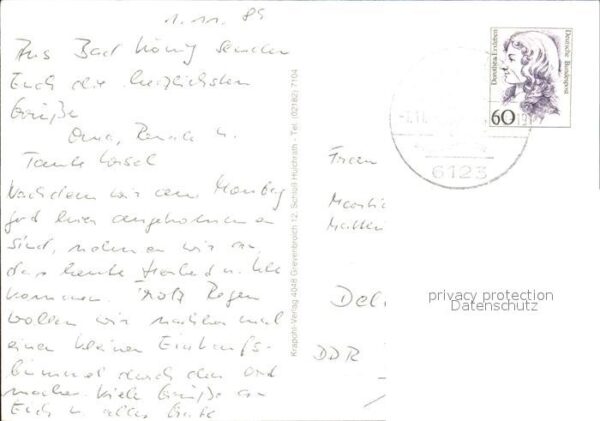 1.11.89
Aus Bad König senden
Euch die herzlichsten
Grüße
Oma, Renate u.
Tante
Nachdem wir am Montag
gut hier angekommen
sind, nehmen wir an,
das heute
kommen. Trotz Regen
wollen wir nachher mal
einen kleinen Einkaufs-
bummel durch den Ort
machen. Viele Grüße an
Euch u. alles Gute
Krapohl-Verlag 4048 Grevenbroich 12, Schloß Hülchrath - Tel. (02182) 7104
Dorothea Erxleben
Deutsche Bundespost
60
6123
Frau
DDR
privacy protection
Datenschutz